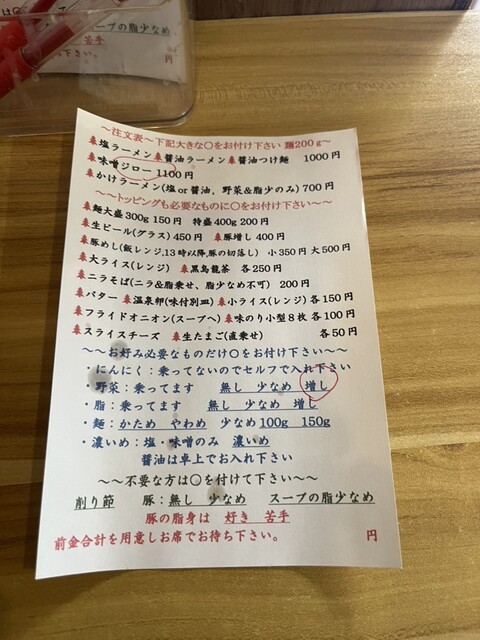 は〇
スープの脂少なめ
苦手
い。
円
～注文表～下記大きな〇をお付け下さい 麺200g～
塩ラーメン 醤油ラーメン 醤油つけ麺 1000円
味噌ジロー 1100円
かけラーメン(塩or醤油，野菜&脂少のみ)700円
～～トッピングも必要なものに〇をお付け下さい～～
麺大盛300g 150円 特盛400g 200円
生ビール(グラス)450円 豚増し400円
豚めし(飯レンジ,13時以降,豚の切落し) 小350円 大500円
大ライス(レンジ) 黒烏龍茶 各250円
ニラそば(ニラ&脂乗せ、脂少なめ不可) 200円
バター 温泉卵(味付別皿) 小ライス(レンジ)各150円
フライドオニオン(スープへ) 味のり小型8枚 各100円
スライスチーズ 生たまご(直乗せ) 各50円
～～お好み必要なものだけ〇をお付け下さい～～
・にんにく：乗ってないのでセルフで入れ下さい
・野菜：乗ってます 無し 少なめ 増し
・脂：乗ってます 無し 少なめ 増し
・麺：かため やわめ 少なめ100g 150g
・濃いめ：塩・味噌のみ 濃いめ
醤油は卓上でお入れ下さい
～～不要な方は〇を付けて下さい～～
削り節 豚：無し 少なめ スープの脂少なめ
豚の脂身は 好き 苦手
前金合計を用意しお席でお待ち下さい。 円